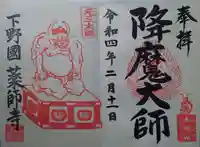 奉拝
降魔大師
令和四年二月十一日
元三大師
下野國薬師寺